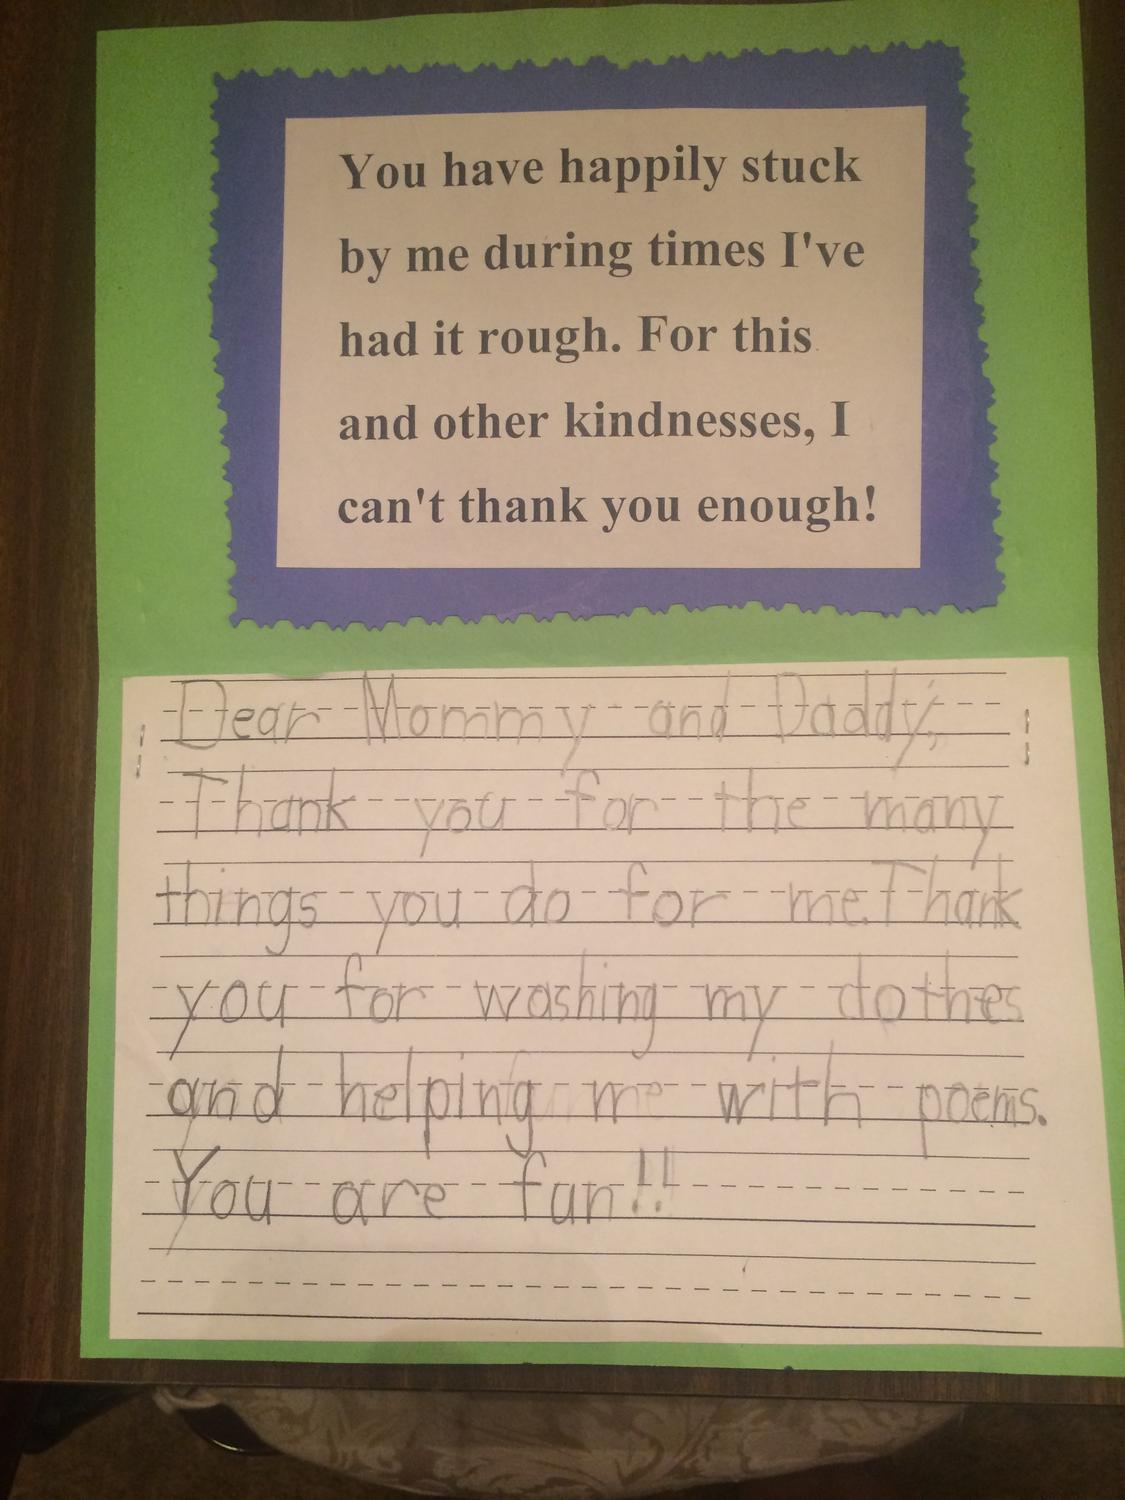 You have happily stuck
by me during times I've
had it rough. For this
and other kindnesses, I
can't thank you enough!
Dear Mommy and Daddy,
Thank you for the many
things you do for me. Thank
you for washing my clothes
and helping me with poems.
You are fun!!